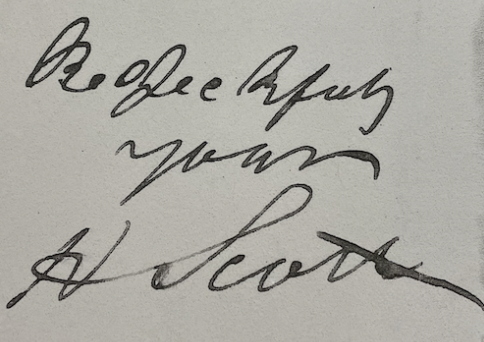 Respectfully
yours
H Scott